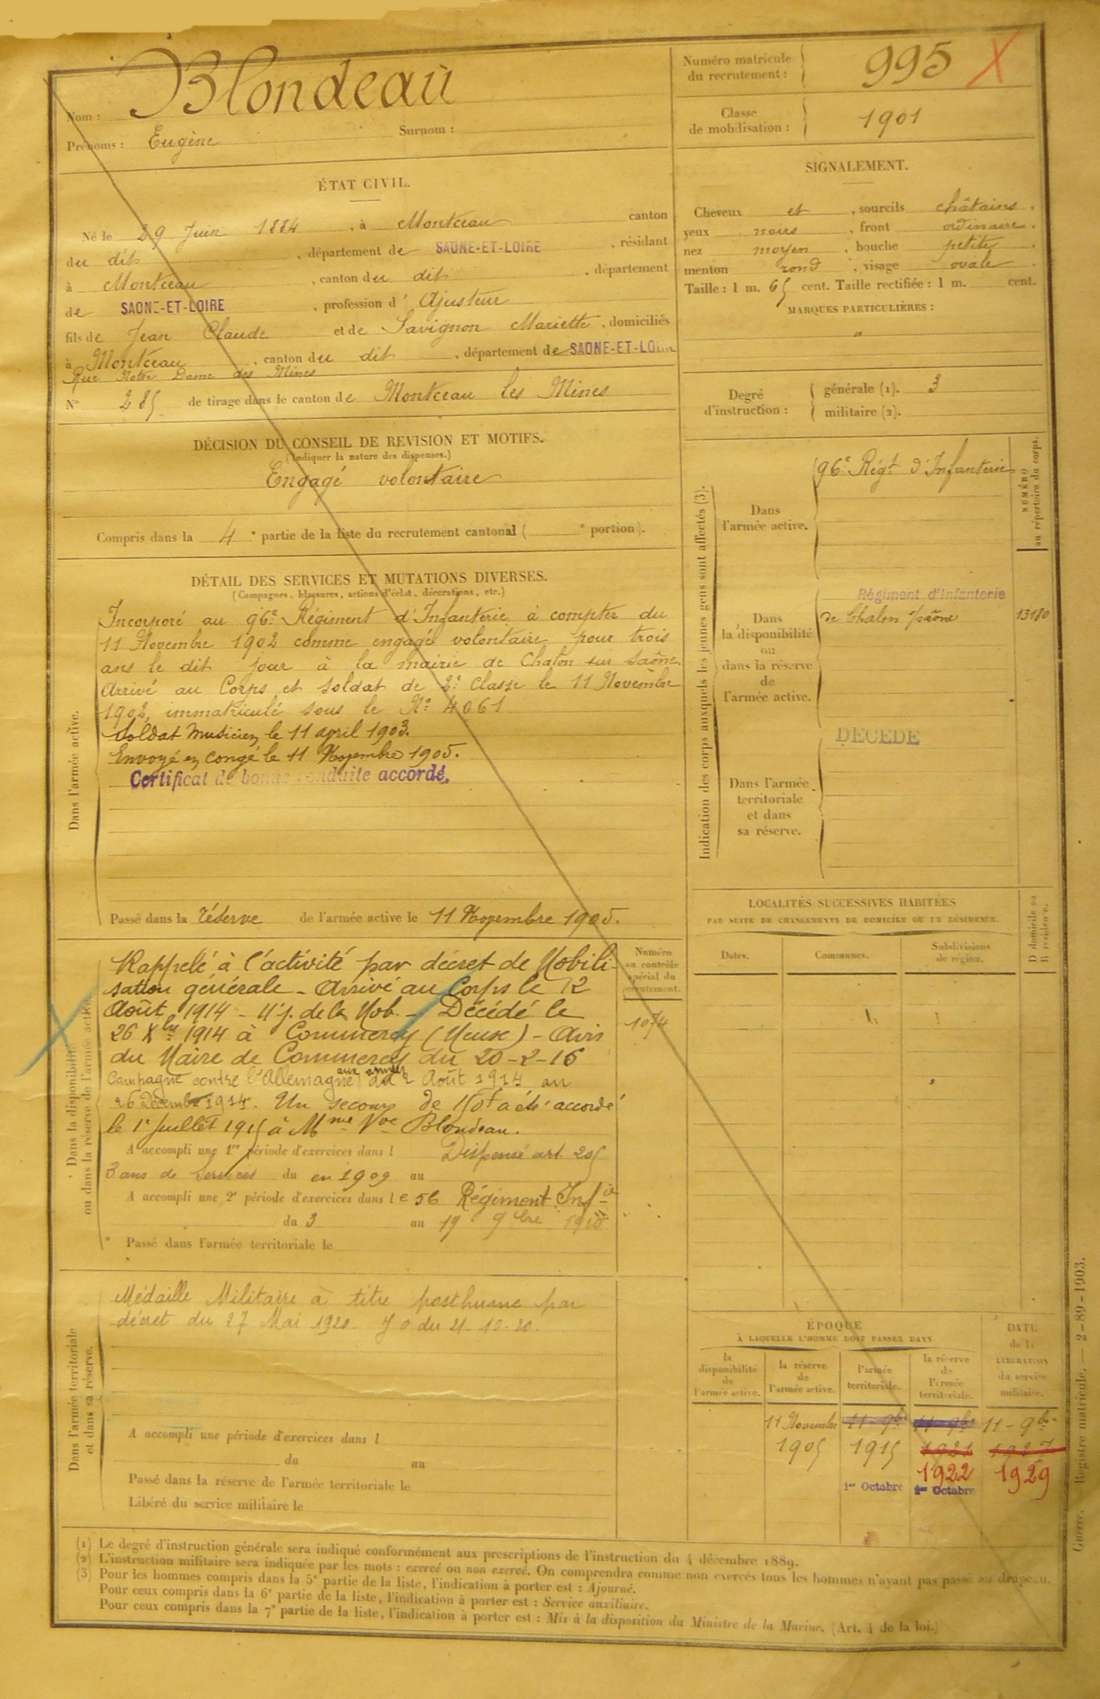 Nom : Blondeau
Prénoms : Eugène Surnom :
Numéro matricule du recrutement : 995 X
Classe de mobilisation : 1901
ÉTAT CIVIL.
Né le 29 Juin 1884, à Montceau canton
du dit, département de SAONE-ET-LOIRE, résidant
à Montceau, canton du dit, département
de SAONE-ET-LOIRE, profession d'Ajusteur
fils de Jean Claude et de Savignon Mariette, domiciliés
à Montceau, canton du dit, département de SAONE-ET-LOIRE
Rue Notre Dame des Mines
N° 285 de tirage dans le canton de Montceau les Mines
SIGNALEMENT.
Cheveux et, sourcils châtains.
yeux noirs, front ordinaire.
nez moyen, bouche petite.
menton rond, visage ovale.
Taille : 1 m. 65 cent. Taille rectifiée : 1 m. cent.
MARQUES PARTICULIÈRES :
"
Degré d'instruction : générale (1). 3
militaire (2).
DÉCISION DU CONSEIL DE REVISION ET MOTIFS.
(Indiquer la nature des dispenses.)
Engagé volontaire
Compris dans la 4e partie de la liste du recrutement cantonal ( e portion).
DÉTAIL DES SERVICES ET MUTATIONS DIVERSES.
(Campagnes, blessures, actions d'éclat, décorations, etc.)
Dans l'armée active.
Incorporé au 96e Régiment d'Infanterie à compter du
11 Novembre 1902 comme engagé volontaire pour trois
ans le dit jour à la mairie de Chalon sur Saône.
Arrivé au Corps et soldat de 2e classe le 11 Novembre
1902, immatriculé sous le N° 4061
Soldat musicien le 11 avril 1903.
Envoyé en congé le 11 Novembre 1905.
Certificat de bonne conduite accordé.
Passé dans la réserve de l'armée active le 11 Novembre 1905.
Dans la disponibilité ou dans la réserve de l'armée active.
Numéro au contrôle spécial du recrutement.
1074
Rappelé à l'activité par décret de Mobili-
sation générale - Arrivé au Corps le 12
Août 1914 - 11e j. de la Mob. - Décédé le
26 Xbre 1914 à Commercy (Meuse) - Avis
du Maire de Commercy du 20-2-15
Campagne contre l'Allemagne aux armées du 2 Août 1914 au
26 Décembre 1914. Un secours de 150f a été accordé
le 1er Juillet 1915 à Mme Vve Blondeau.
A accompli une 1re période d'exercices dans l Dispensé art 205
3 ans de services du en 1909 au
A accompli une 2e période d'exercices dans le 56 Régiment Infie
du 3 au 19 9bre 1910
Passé dans l'armée territoriale le
Dans l'armée territoriale et dans sa réserve.
Médaille Militaire à titre posthume par
décret du 27 Mai 1920. J O du 21-10-20.
A accompli une période d'exercices dans l
du au
Passé dans la réserve de l'armée territoriale le
Libéré du service militaire le
Indication des corps auxquels les jeunes gens sont affectés (3).
NUMÉRO au répertoire du corps.
Dans l'armée active. 96e Régt d'Infanterie
Dans la disponibilité ou dans la réserve de l'armée active.
Régiment d'Infanterie
de Chalon s/Saône 13180
DÉCÉDÉ
Dans l'armée territoriale et dans sa réserve.
LOCALITÉS SUCCESSIVES HABITÉES
PAR SUITE DE CHANGEMENTS DE DOMICILE OU DE RÉSIDENCE.
Dates. Communes. Subdivisions de région. D domicile ou R résidence.
ÉPOQUE
À LAQUELLE L'HOMME DOIT PASSER DANS
la disponibilité de l'armée active. la réserve de l'armée active. l'armée territoriale. la réserve de l'armée territoriale. DATE de la LIBÉRATION du service militaire.
11 Novembre 11-9bre 11-9bre 11-9bre
1905 1915 1921 1927
1922 1929
1er Octobre 1er Octobre
(1) Le degré d'instruction générale sera indiqué conformément aux prescriptions de l'instruction du 4 décembre 1889.
(2) L'instruction militaire sera indiquée par les mots : exercé ou non exercé. On comprendra comme non exercés tous les hommes n'ayant pas passé au drapeau.
(3) Pour les hommes compris dans la 5e partie de la liste, l'indication à porter est : Ajourné.
Pour ceux compris dans la 6e partie de la liste, l'indication à porter est : Service auxiliaire.
Pour ceux compris dans la 7e partie de la liste, l'indication à porter est : Mis à la disposition du Ministre de la Marine. (Art. 4 de la loi.)
Guerre. Registre matricule. — 2-89-1903.